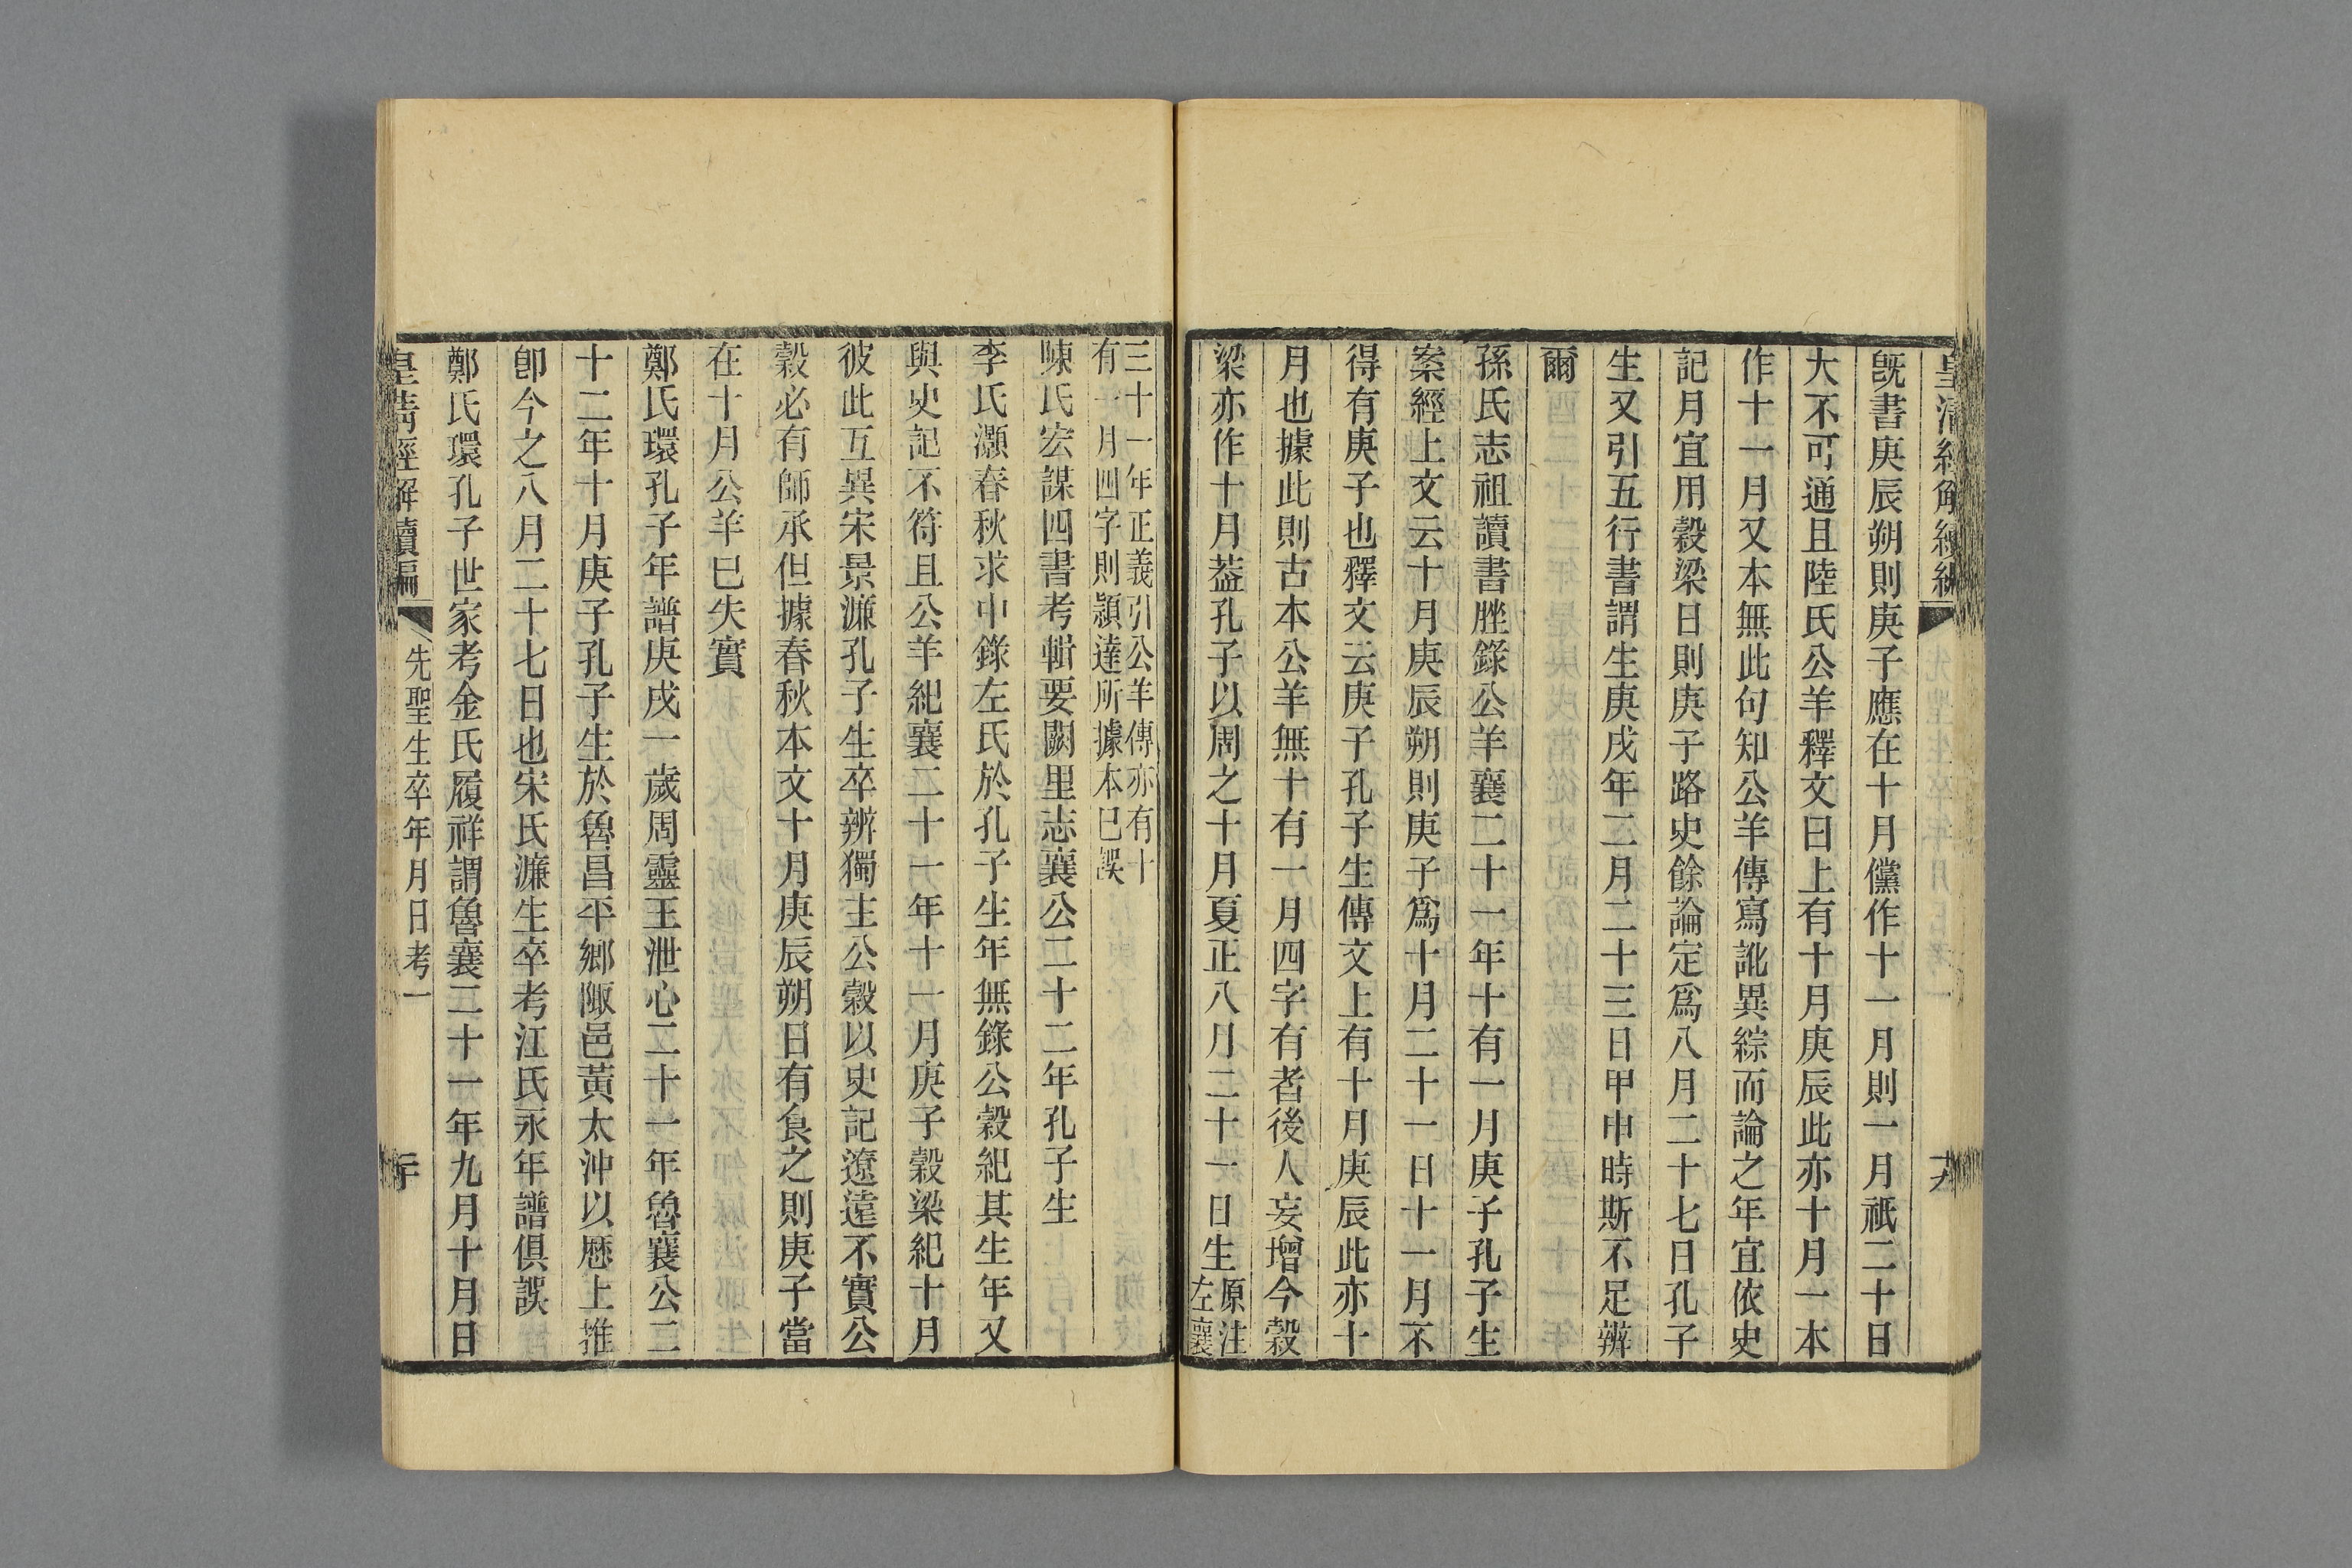 皇清經解續編
既書庚辰朔則庚子應在十月儻作十一月則一月祇二十日
大不可通且陸氏公羊釋文曰上有十月庚辰此亦十月一本
作十一月又本無此句知公羊傳寫訛異綜而論之年宜依史
記月宜用穀梁日則庚子路史餘論定爲八月二十七日孔子
生又引五行書謂生庚戌年二月二十三日甲申時斯不足辨
爾
孫氏志祖讀書脞錄公羊襄二十一年十有一月庚子孔子生
案經上文云十月庚辰朔則庚子爲十月二十一日十一月不
得有庚子也釋文云庚子孔子生傳文上有十月庚辰此亦十
月也據此則古本公羊無十有一月四字有者後人妄增今穀
梁亦作十月葢孔子以周之十月夏正八月二十一日生原注
左襄
三十一年正義引公羊傳亦有十
有一月四字則穎達所據本已誤
陳氏宏謀四書考輯要闕里志襄公二十二年孔子生
李氏灝春秋求中錄左氏於孔子生年無錄公穀紀其生年又
與史記不符且公羊紀襄二十一年十一月庚子穀梁紀十月
彼此互異宋景濂孔子生卒辨獨主公穀以史記遼遠不實公
穀必有師承但據春秋本文十月庚辰朔日有食之則庚子當
在十月公羊巳失實
鄭氏環孔子年譜庚戌一歲周靈王泄心二十一年魯襄公二
十二年十月庚子孔子生於魯昌平鄉陬邑黃太沖以厯上推
卽今之八月二十七日也宋氏濂生卒考江氏永年譜俱誤
鄭氏環孔子世家考金氏履祥謂魯襄二十一年九月十月日
皇清經解續編
先聖生卒年月日考一